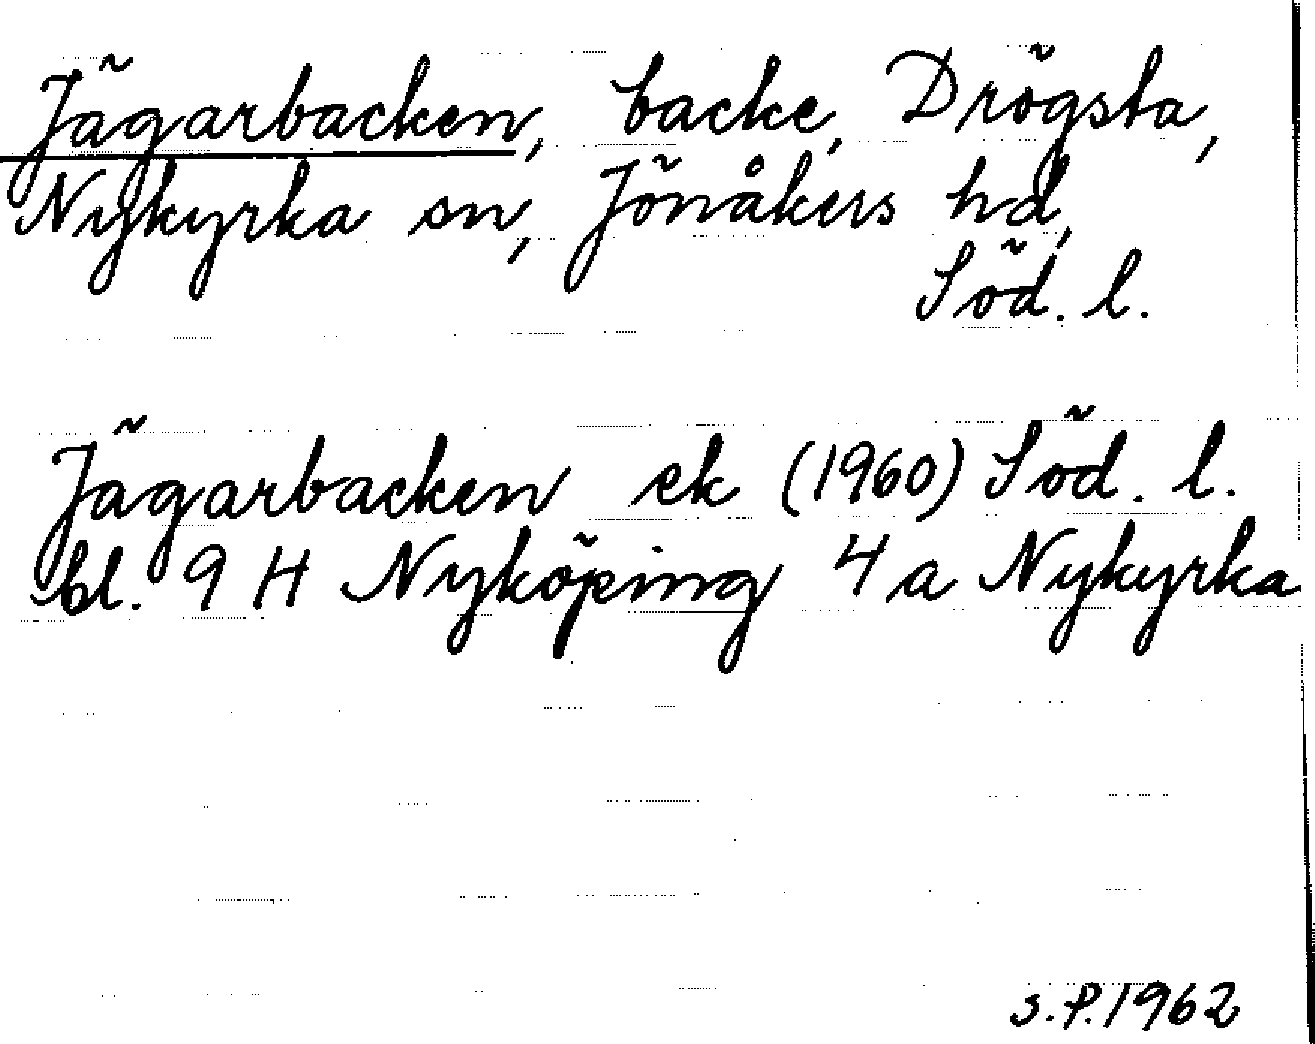 Jägarbacken, backe, Drögsta,
Nykyrka sn, Jönåkers hd,
Söd. l.
Jägarbacken ek (1960) Söd. l.
bl. 9 H Nyköping 4 a Nykyrka
S.P. 1962